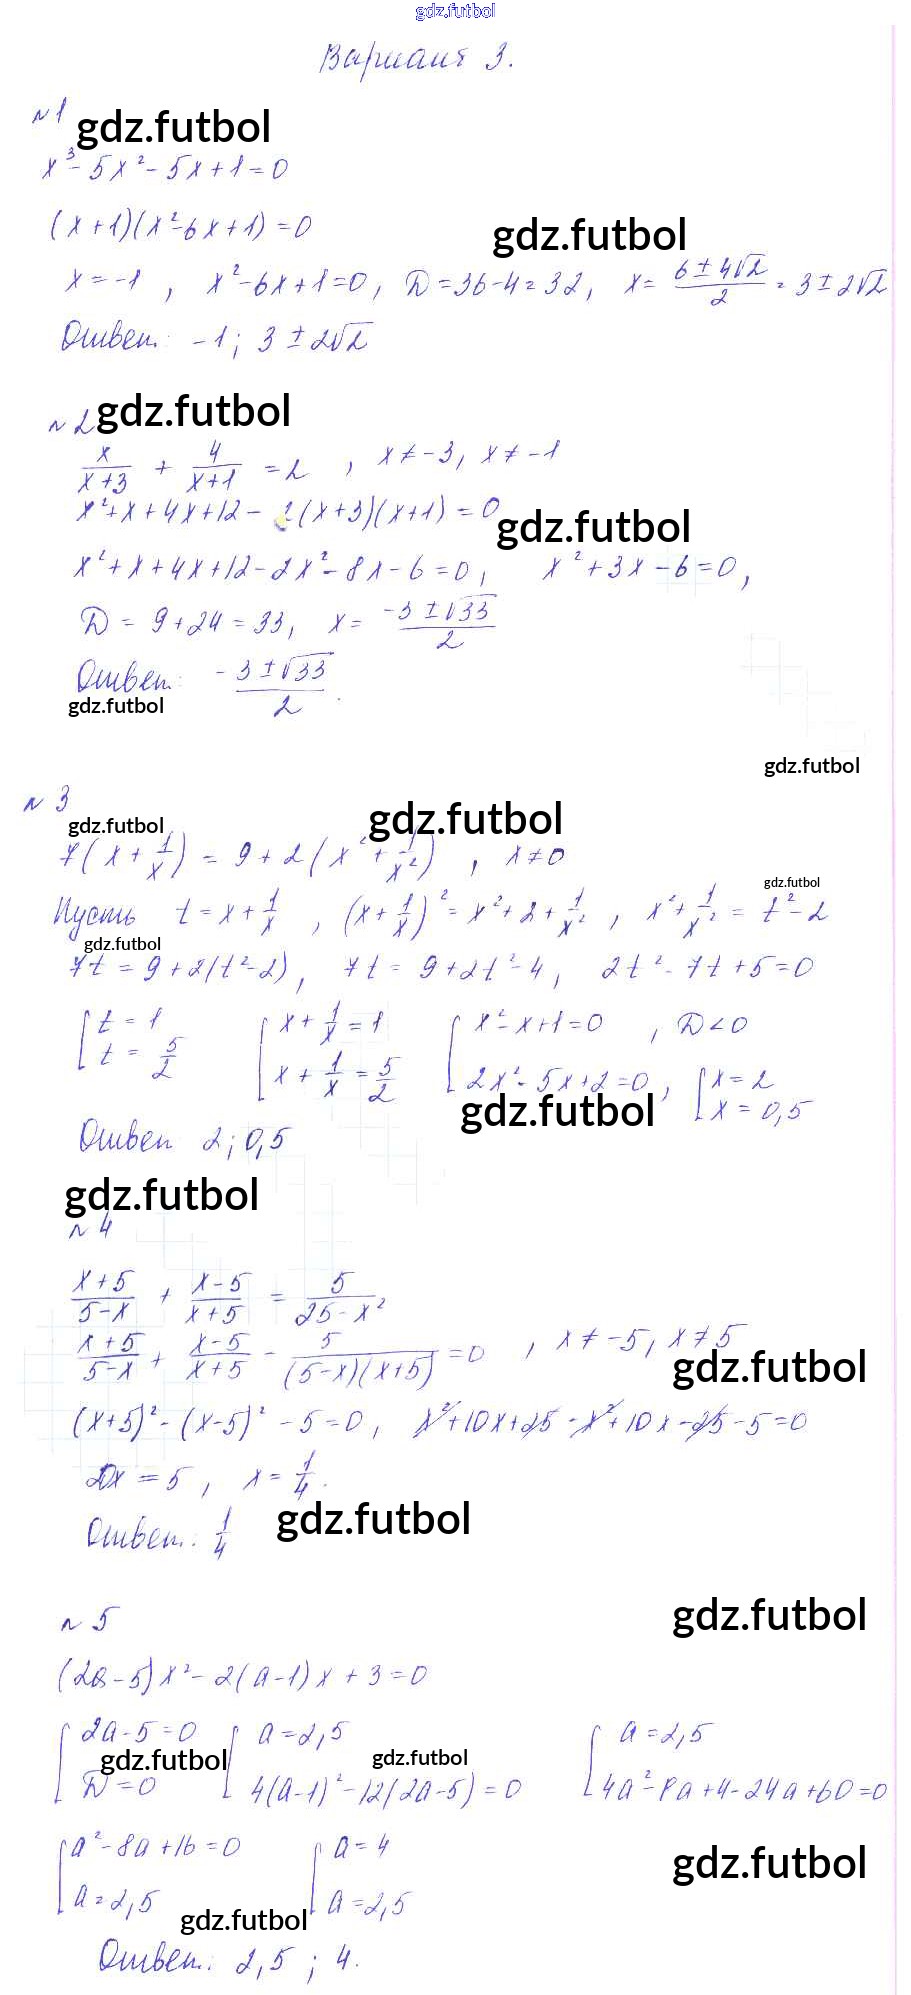 gdz.futbol
Вариант 3.
№1
gdz.futbol
x³ - 5x² - 5x + 1 = 0
(x + 1)(x² - 6x + 1) = 0
gdz.futbol
x = -1 , x² - 6x + 1 = 0, D = 36 - 4 = 32, x = (6 ± 4√2)/2 = 3 ± 2√2
Ответ: -1; 3 ± 2√2
№2
gdz.futbol
x/(x+3) + 4/(x+1) = 2 , x ≠ -3, x ≠ -1
x² + x + 4x + 12 - 2(x+3)(x+1) = 0
gdz.futbol
x² + x + 4x + 12 - 2x² - 8x - 6 = 0, x² + 3x - 6 = 0,
D = 9 + 24 = 33, x = (-3 ± √33)/2
Ответ: (-3 ± √33)/2.
gdz.futbol
gdz.futbol
№3
gdz.futbol
gdz.futbol
7(x + 1/x) = 9 + 2(x² + 1/x²) , x ≠ 0
gdz.futbol
Пусть t = x + 1/x , (x + 1/x)² = x² + 2 + 1/x² , x² + 1/x² = t² - 2
gdz.futbol
7t = 9 + 2(t² - 2), 7t = 9 + 2t² - 4, 2t² - 7t + 5 = 0
[ t = 1 [ x + 1/x = 1 [ x² - x + 1 = 0 , D < 0
t = 5/2 x + 1/x = 5/2 2x² - 5x + 2 = 0, [ x = 2
x = 0,5
gdz.futbol
Ответ 2; 0,5
gdz.futbol
№4
(x+5)/(5-x) + (x-5)/(x+5) = 5/(25-x²)
(x+5)/(5-x) + (x-5)/(x+5) - 5/((5-x)(x+5)) = 0 , x ≠ -5, x ≠ 5
gdz.futbol
(x+5)² - (x-5)² - 5 = 0, x² + 10x + 25 - x² + 10x - 25 - 5 = 0
20x = 5, x = 1/4.
gdz.futbol
Ответ: 1/4
gdz.futbol
№5
(2a - 5)x² - 2(a-1)x + 3 = 0
[ 2a - 5 = 0 [ a = 2,5 [ a = 2,5
gdz.futbol
gdz.futbol
D = 0 4(a-1)² - 12(2a-5) = 0 4a² - 8a + 4 - 24a + 60 = 0
[ a² - 8a + 16 = 0 [ a = 4
gdz.futbol
a = 2,5 a = 2,5
gdz.futbol
Ответ: 2,5; 4.